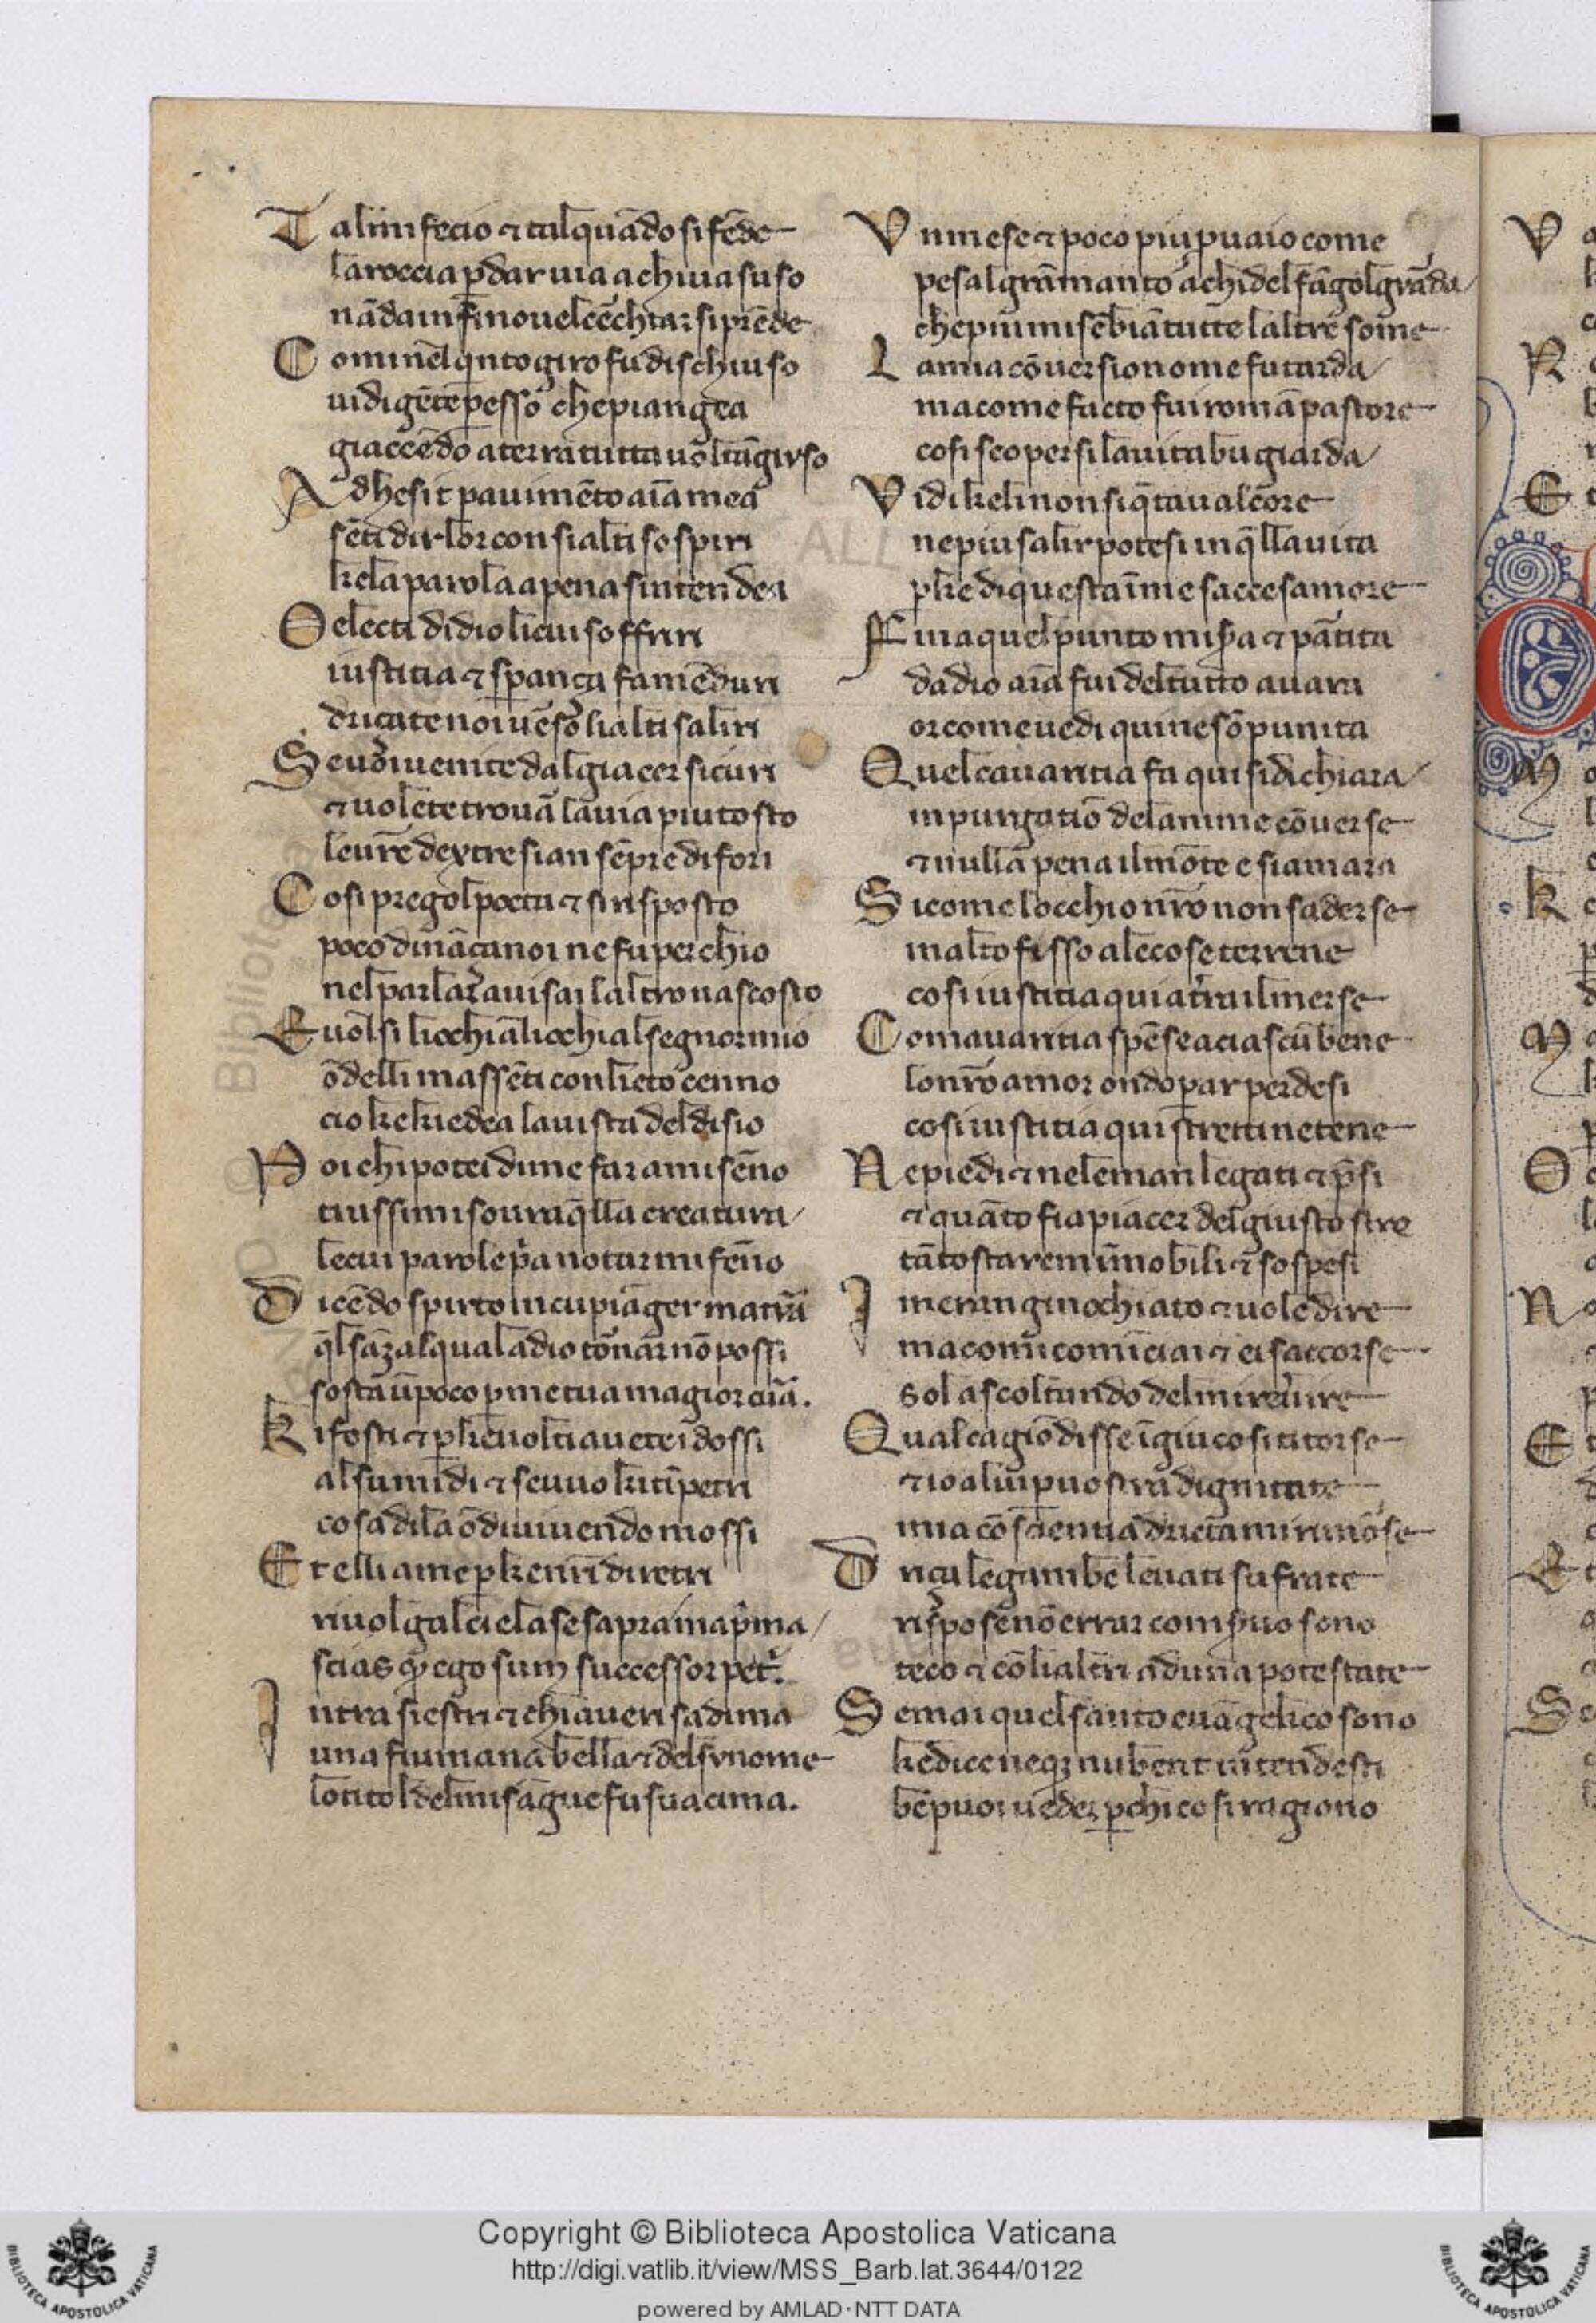 Talimifecio ⁊ talquādo sifēde
laroccia p̄dar uia achiua suso
nādaīnfino uelcēchiar siprēde
Cominēl qinto giro fu dischiuso
uidi gēte p̄ esso che piangea
giaccēdo aterra tutta uolta īgiuso
Adhesit pauimēto aīa mea
sēti dir lor con sialti sospiri
kela parola apena sintendea
O electi didio licui soffriri
iustitia ⁊ sperança fa mē duri
driçate noi uēso lialti saliri
Se uoi uenite dal giacer sicuri
⁊ uolete trouā la uia piu tosto
le ur̄e dextre sian sēpre di fori
Cosi pregol poeta ⁊ si risposto
poco dināçi anoi ne fu perchio
nel parlar auisai laltro nascosto
E uolsi liochi ali ochi al segnor mio
ōdelli massēti con lieto cenno
cio ke kiedea la uista del disio
Poi chi potei di me far a mi sēno
trassimi soura q̄lla creatura
le cui parole p̄a notar mi fēno
Dicēdo spirto in cui piāger matura
q̄l sāzal quale a dio tōnar nō possi
sosta ū poco p me tua magior cura.
Ki fosti ⁊ p̱ke uolti auete i dossi
al su mi di ⁊ se uuo ki tīpetri
cosa di la ōdi uiuendo mossi
Et elli ame p̱ke nr̄i diretri
riuolga lcielo a se saprai ma p̄ma
scias ꝙ ego sum successor pet̄.
Intra siestri ⁊ chiaueri sadima
una fiumana bella ⁊ del su nome
lo titol del mi sāgue fu sua cima.
Un mese ⁊ poco piu puaio come
pesal grā manto achi del fāgol gｕarda
che piuma sēbiā tutte laltre some
La mia cōuersion ome fu tarda
ma come facto fui romā pastore
cosi scopersi la uita bugiarda
Vidi keli non si q̄taua lcore
ne piu salir potesi in q̄lla uita
p̱ke di questa ī me saccese amore
Fin a quel punto misera ⁊ partita
da dio aīa fui del tutto auara
or come uedi qui ne sō punita
Quel cauaritia fa qui si dichiara
in purgatiō del anime cōuerse
⁊ nulla pena il mōte e si amara
Si come locchio nr̄o non saderse
in alto fisso ale cose terrene
cosi iustitia qui a terra il merse
Com auaritia spēse aciascū bene
lo nr̄o amor ondopar perdesi
cosi iustitia qui stretti ne tene
Ne piedi ⁊ nele man legati ⁊ p̄si
⁊ quāto fia piacer del giusto sire
tāto starem īmobili ⁊ sospesi
I mera nginochiato ⁊ uole dire
ma comi comīciai ⁊ ei saccorse
sol ascoltando del mi reuerire
Qual cagiō disse ī giu cosi ti torse
⁊ io a lui p uostra dignitate
mia cōscientia dricta mi rimorse
Driça le gambe leuati su frate
rispose nō errar conseruo sono
teco ⁊ cō lialtri ad una potestate
Se mai quel santo euāgelico sono
ke dice neq; nubent intendesti
bē puoi ueder p̱chi cosi ragiono
Copyright © Biblioteca Apostolica Vaticana
http://digi.vatlib.it/view/MSS_Barb.lat.3644/0122
powered by AMLAD·NTT DATA